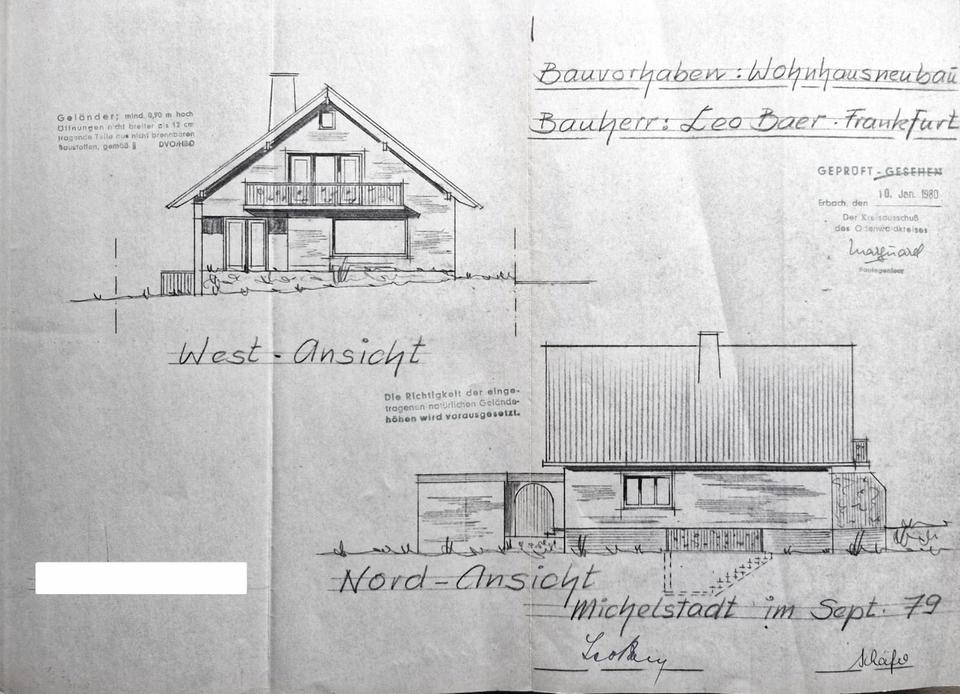 Bauvorhaben: Wohnhausneubau
Bauherr: Leo Baer · Frankfurt
Geländer; mind. 0,90 m hoch
Öffnungen nicht breiter als 12 cm
tragende Teile aus nicht brennbaren
Baustoffen, gemäß § DVO/HBO
GEPRÜFT - GESEHEN
10. Jan. 1980
Erbach, den
Der Kreisausschuß
des Odenwaldkreises
Bauingenieur
West-Ansicht
Die Richtigkeit der einge-
tragenen natürlichen Gelände-
höhen wird vorausgesetzt.
Nord-Ansicht
Michelstadt im Sept. 79